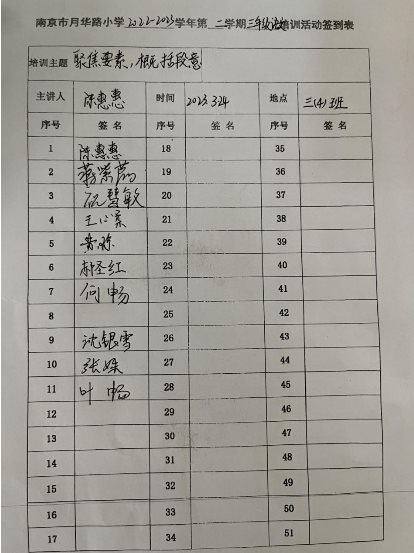 南京市月华路小学2022-2023学年第二学期三年级语培训活动签到表
培训主题 聚焦要素,概括段意
主讲人 陈惠惠 时间 2023.3.24 地点 三(4)班
序号 签名 序号 签名 序号 签名
1 陈惠惠 18 35
2 19 36
3 阮慧敏 20 37
4 王心 21 38
5 22 39
6 圣红 23 40
7 何畅 24 41
8 25 42
9 沈银雪 26 43
10 张姝 27 44
11 叶畅 28 45
12 29 46
13 30 47
14 31 48
15 32 49
16 33 50
17 34 51